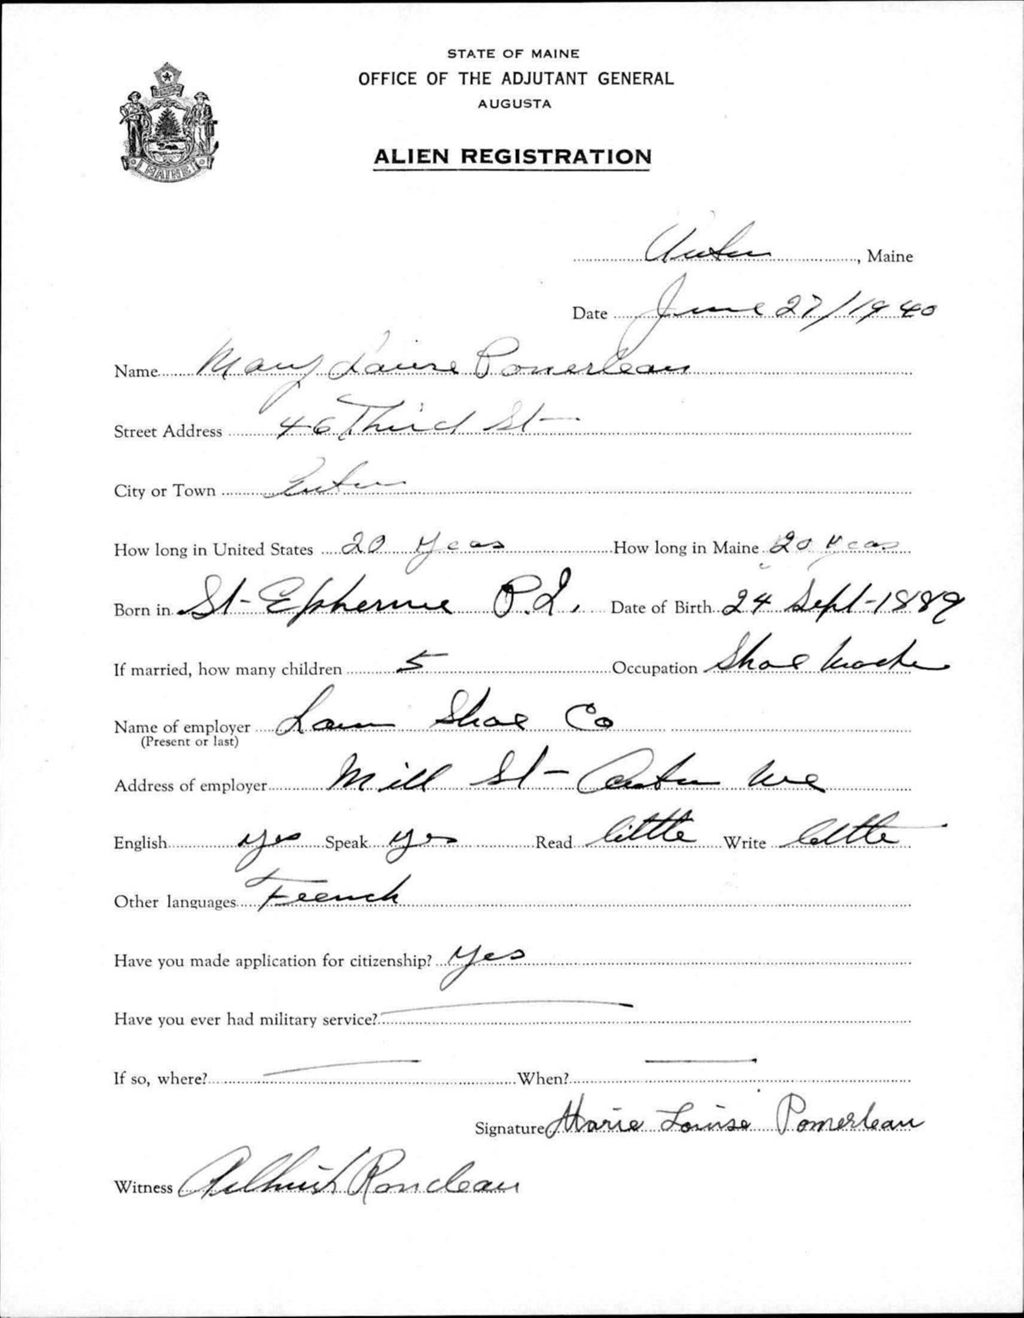 STATE OF MAINE
OFFICE OF THE ADJUTANT GENERAL
AUGUSTA
MAINE
ALIEN REGISTRATION
, Maine
Date June 27/1940
Name Mary Louise Pomerleau
Street Address 46 Third St
City or Town
How long in United States 20 Years How long in Maine 20 Years
Born in St-Ephemie P.Q. Date of Birth 24 Sept-1889
If married, how many children 5 Occupation Shoe
Name of employer Shoe Co
(Present or last)
Address of employer Mill St- Me
English yes Speak yes Read little Write little
Other languages French
Have you made application for citizenship? Yes
Have you ever had military service?
If so, where? When?
Signature Marie Louise Pomerleau
Witness